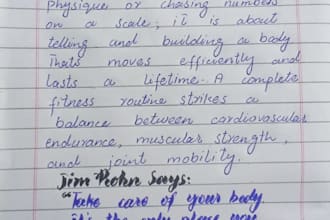 physique or chasing numbers
on a scale; it is about
telling and building a body
Thats moves efficiently and
lasts a lifetime. A complete
fitness routine strikes a
balance between cardiovascular
endurance, muscular strength,
and joint mobility.
Jim Rohn Says:
"Take care of your body.
it's the only place you